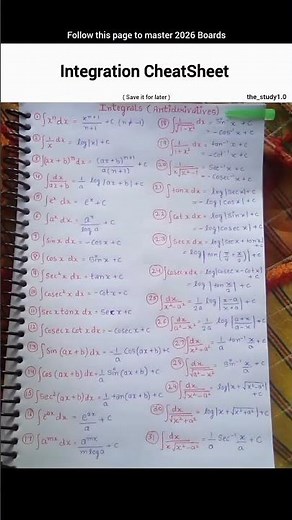 Follow this page to master 2026 Boards
Integration CheatSheet
( Save it for later )
the_study1.0
Integrals (Antiderivatives)
① ∫xⁿdx = xⁿ⁺¹/n+1 + c (n ≠ -1)
② ∫1/x dx = log|x| + c
③ ∫(ax+b)ⁿdx = (ax+b)ⁿ⁺¹/a(n+1) + c
④ ∫dx/ax+b = 1/a log|ax+b| + c
⑤ ∫eˣdx = eˣ + c
⑥ ∫aˣdx = aˣ/log a + c
⑦ ∫sinx dx = -cosx + c
⑧ ∫cosx dx = sinx + c
⑨ ∫sec²x dx = tanx + c
⑩ ∫cosec²x dx = -cotx + c
⑪ ∫secx tanx dx = secx + c
⑫ ∫cosecx cotx dx = -cosecx + c
⑬ ∫sin(ax+b)dx = -1/a cos(ax+b) + c
⑭ ∫cos(ax+b)dx = 1/a sin(ax+b) + c
⑮ ∫sec²(ax+b)dx = 1/a tan(ax+b) + c
⑯ ∫eᵃˣdx = eᵃˣ/a + c
⑰ ∫aᵐˣdx = aᵐˣ/m log a + c
⑱ ∫1/√1-x² = sin⁻¹x + c
= -cos⁻¹x + c
= tan⁻¹x + c
= -cot⁻¹x + c
⑳ = sec⁻¹x + c
= -cosec⁻¹x + c
㉑ ∫tanx dx = log|secx| + c
= -log|cosx| + c
㉒ ∫cotx dx = log|sinx| + c
= -log|cosecx| + c
㉓ ∫secx dx = log|secx + tanx|
㉔ ∫cosecx dx = log|cosecx - cotx| + c
㉕ ∫dx/x²-a² = 1/2a log|x-a/x+a| + c
㉖ ∫dx/a²-x² = 1/2a log|a+x/a-x| + c
= 1/a tan⁻¹ x/a + c
㉘ ∫dx/√a²-x² = sin⁻¹ x/a + c
㉙ ∫dx/√x²-a² = log|x+√x²-a²| + c
㉚ = log|x+√x²+a²| + c
㉛ ∫dx/x√x²-a² = 1/a sec⁻¹ x/a + c